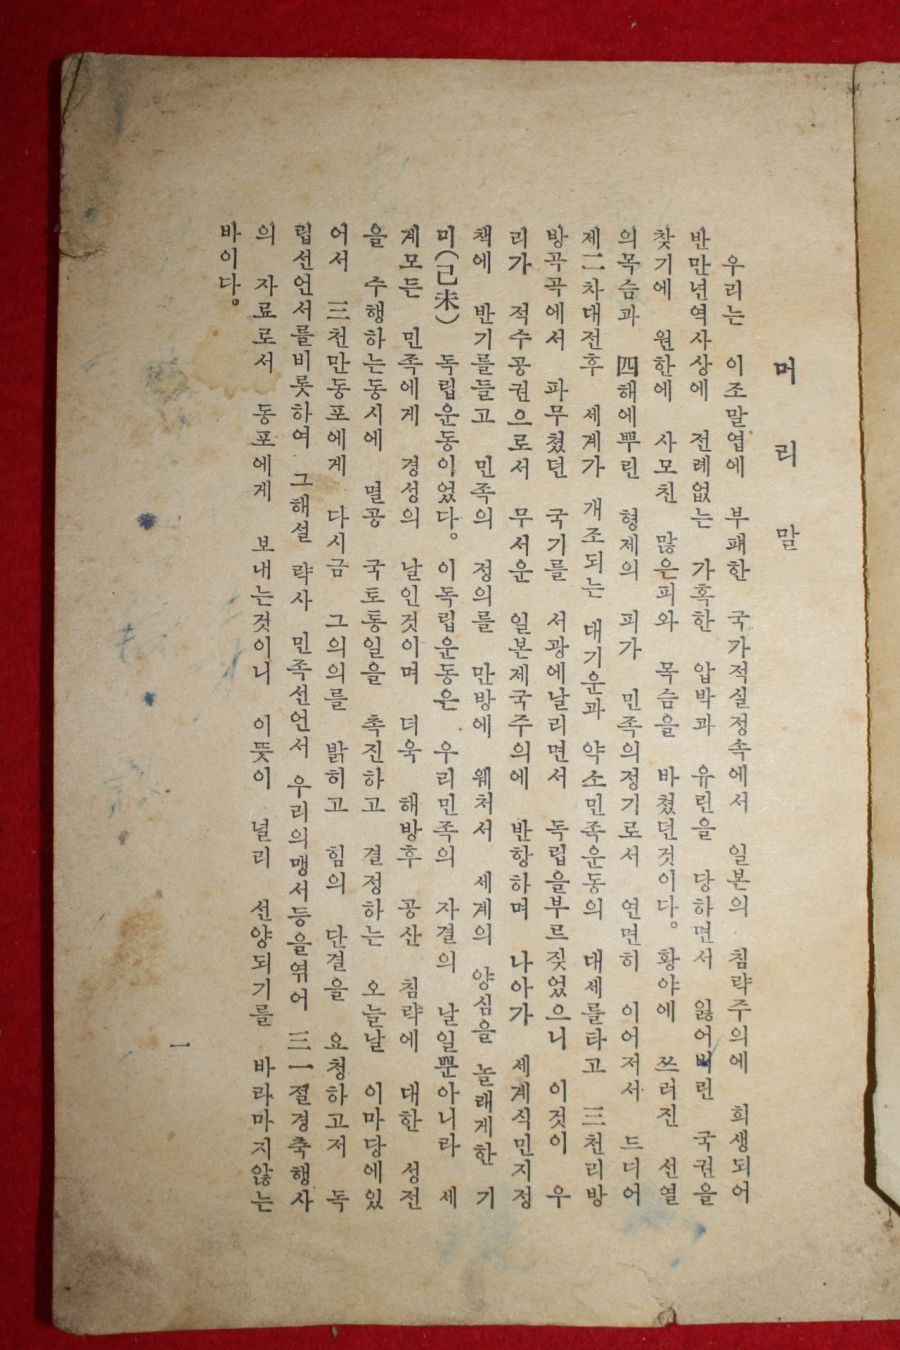 머리말
우리는 이조말엽에 부패한 국가적실정속에서 일본의 침략주의에 희생되어
반만년역사상에 전례없는 가혹한 압박과 유린을 당하면서 잃어버린 국권을
찾기에 원한에 사모친 많은피와 목슴을 바쳤던것이다。황야에 쓰러진 선열
의목슴과 四해에뿌린 형제의 피가 민족의정기로서 연면히 이어저서 드디어
제二차대전후 세계가 개조되는 대기운과 약소민족운동의 대세를타고 三천리방
방곡곡에서 파무쳤던 국기를 서광에날리면서 독립을부르짖었으니 이것이 우
리가 적수공권으로서 무서운 일본제국주의에 반항하며 나아가 세계식민지정
책에 반기를들고 민족의 정의를 만방에 웨처서 세계의 양심을 놀래게한 기
미(己未) 독립운동이었다。이독립운동은 우리민족의 자결의 날일뿐아니라 세
계모든 민족에게 경성의 날인것이며 더욱 해방후 공산 침략에 대한 성전
을 수행하는동시에 멸공 국토통일을 촉진하고 결정하는 오늘날 이마당에있
어서 三천만동포에게 다시금 그의의를 밝히고 힘의 단결을 요청하고저 독
립선언서를비롯하여 그해설 략사 민족선언서 우리의맹서등을엮어 三一절경축행사
의 자료로서 동포에게 보내는것이니 이뜻이 널리 선양되기를 바라마지않는
바이다。
一